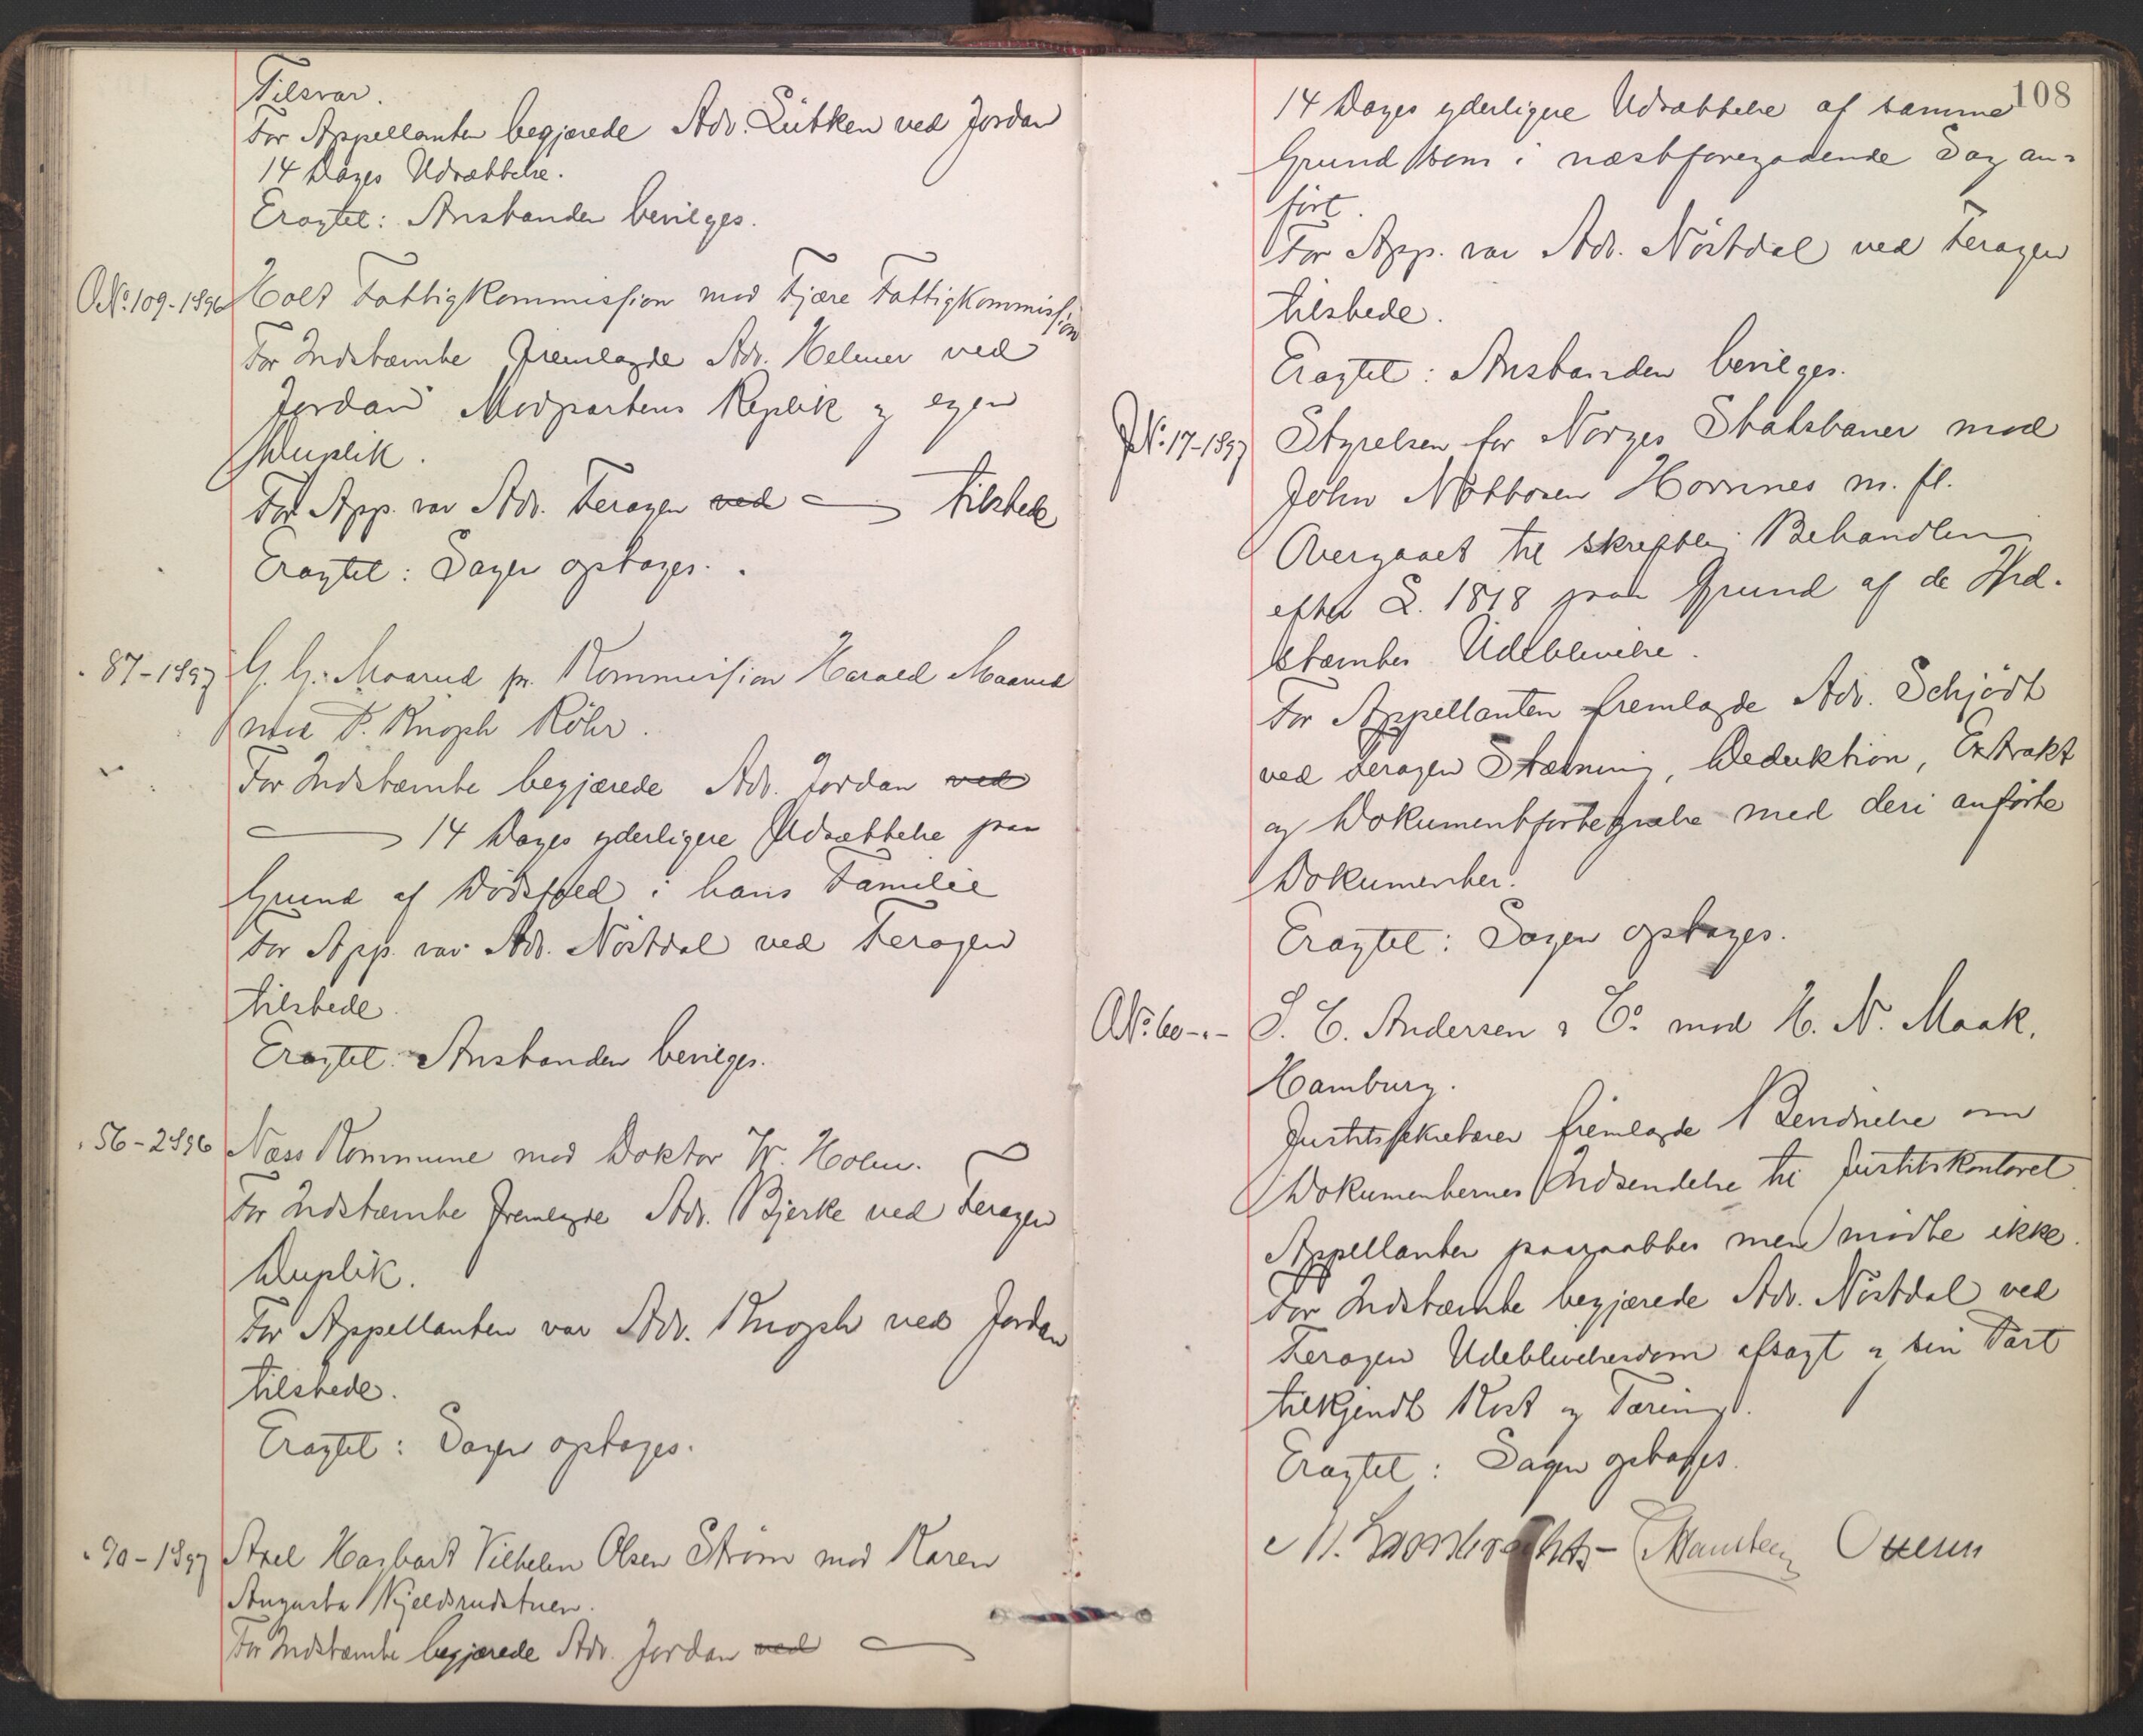 Tilsvar.
For Appellanten begjærede Adv. Lütken ved Jordan
14 Dages Udsættelse.
Eragtet: Anstanden bevilges.
No. 109-1896 Holt Fattigkommission mod Fjære Fattigkommission
For Indstævnte fremlagde Adv. Helmer ved
Jordan Modpartens Replik og egen
Duplik.
For App. var Adv. Feragen ved — tilstede
Eragtet: Sagen optages.
" 87-1897 G. G. Maarud pr. Kommission Harald Maarud
mod P. Knoph Röhr.
For Indstævnte begjærede Adv. Jordan ved
— 14 Dages yderligere Udsættelse paa
Grund af Dödsfald i hans Familie
For App. var Adv. Nöstdal ved Feragen
tilstede.
Eragtet: Anstanden bevilges.
" 56-2896 Næss Kommune mod Doktor W. Holm.
For Indstævnte fremlagde Adv. Bjerke ved Feragen
Duplik.
For Appellanten var Adv. Knoph ved Jordan
tilstede.
Eragtet: Sagen optages.
" 90-1897 Axel Hagbart Vilhelm Olsen Ström mod Karen
Augusta Kjeldsrudstuen.
For Indstævnte begjærede Adv. Jordan ved —
108
14 Dages yderligere Udsættelse af samme
Grund som i næstforegaaende Sag an-
fört.
For App. var Adv. Nöstdal ved Feragen
tilstede.
Eragtet: Anstanden bevilges.
No. 17-1897 Styrelsen for Norges Statsbaner mod
John Hornnes m. fl.
Overgaaet til skriftlig Behandling
efter L. 1818 paa Grund af de Ind-
stævntes Udeblivelse.
For Appellanten fremlagde Adv. Schjödt
ved Feragen Stævning, Deduktion, Extrakt
og Dokumentfortegnelse med deri anförte
Dokumenter.
Eragtet: Sagen optages.
No. 60-"- S. C. Andersen & Co. mod H. N. Maak,
Hamburg.
Justitssekretæren fremlagde Bevidnelse om
Dokumenternes Indsendelse til Justitskontoret
Appellanten paaraabtes men mödte ikke.
For Indstævnte begjærede Adv. Nöstdal ved
Feragen Udeblivelsesdom afsagt og sin Part
tilkjendt Kost og Tæring.
Eragtet: Sagen optages.